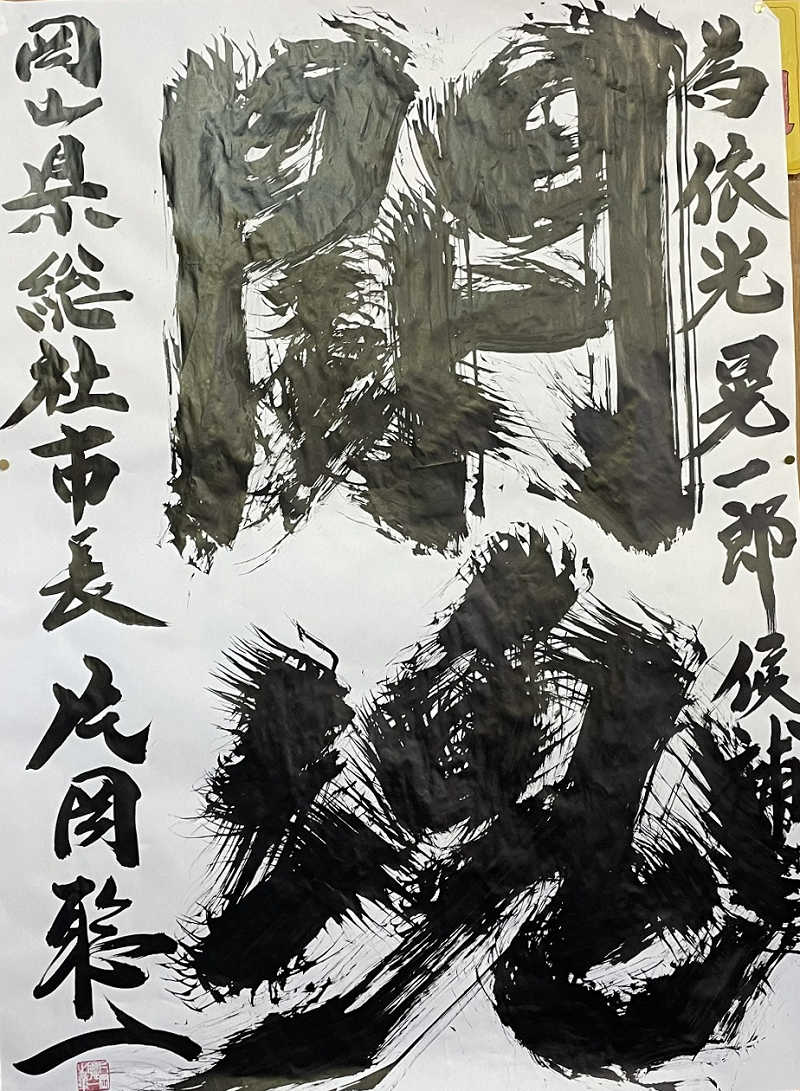 為依光晃一郎候補
闘魂
岡山県総社市長 片岡聡一